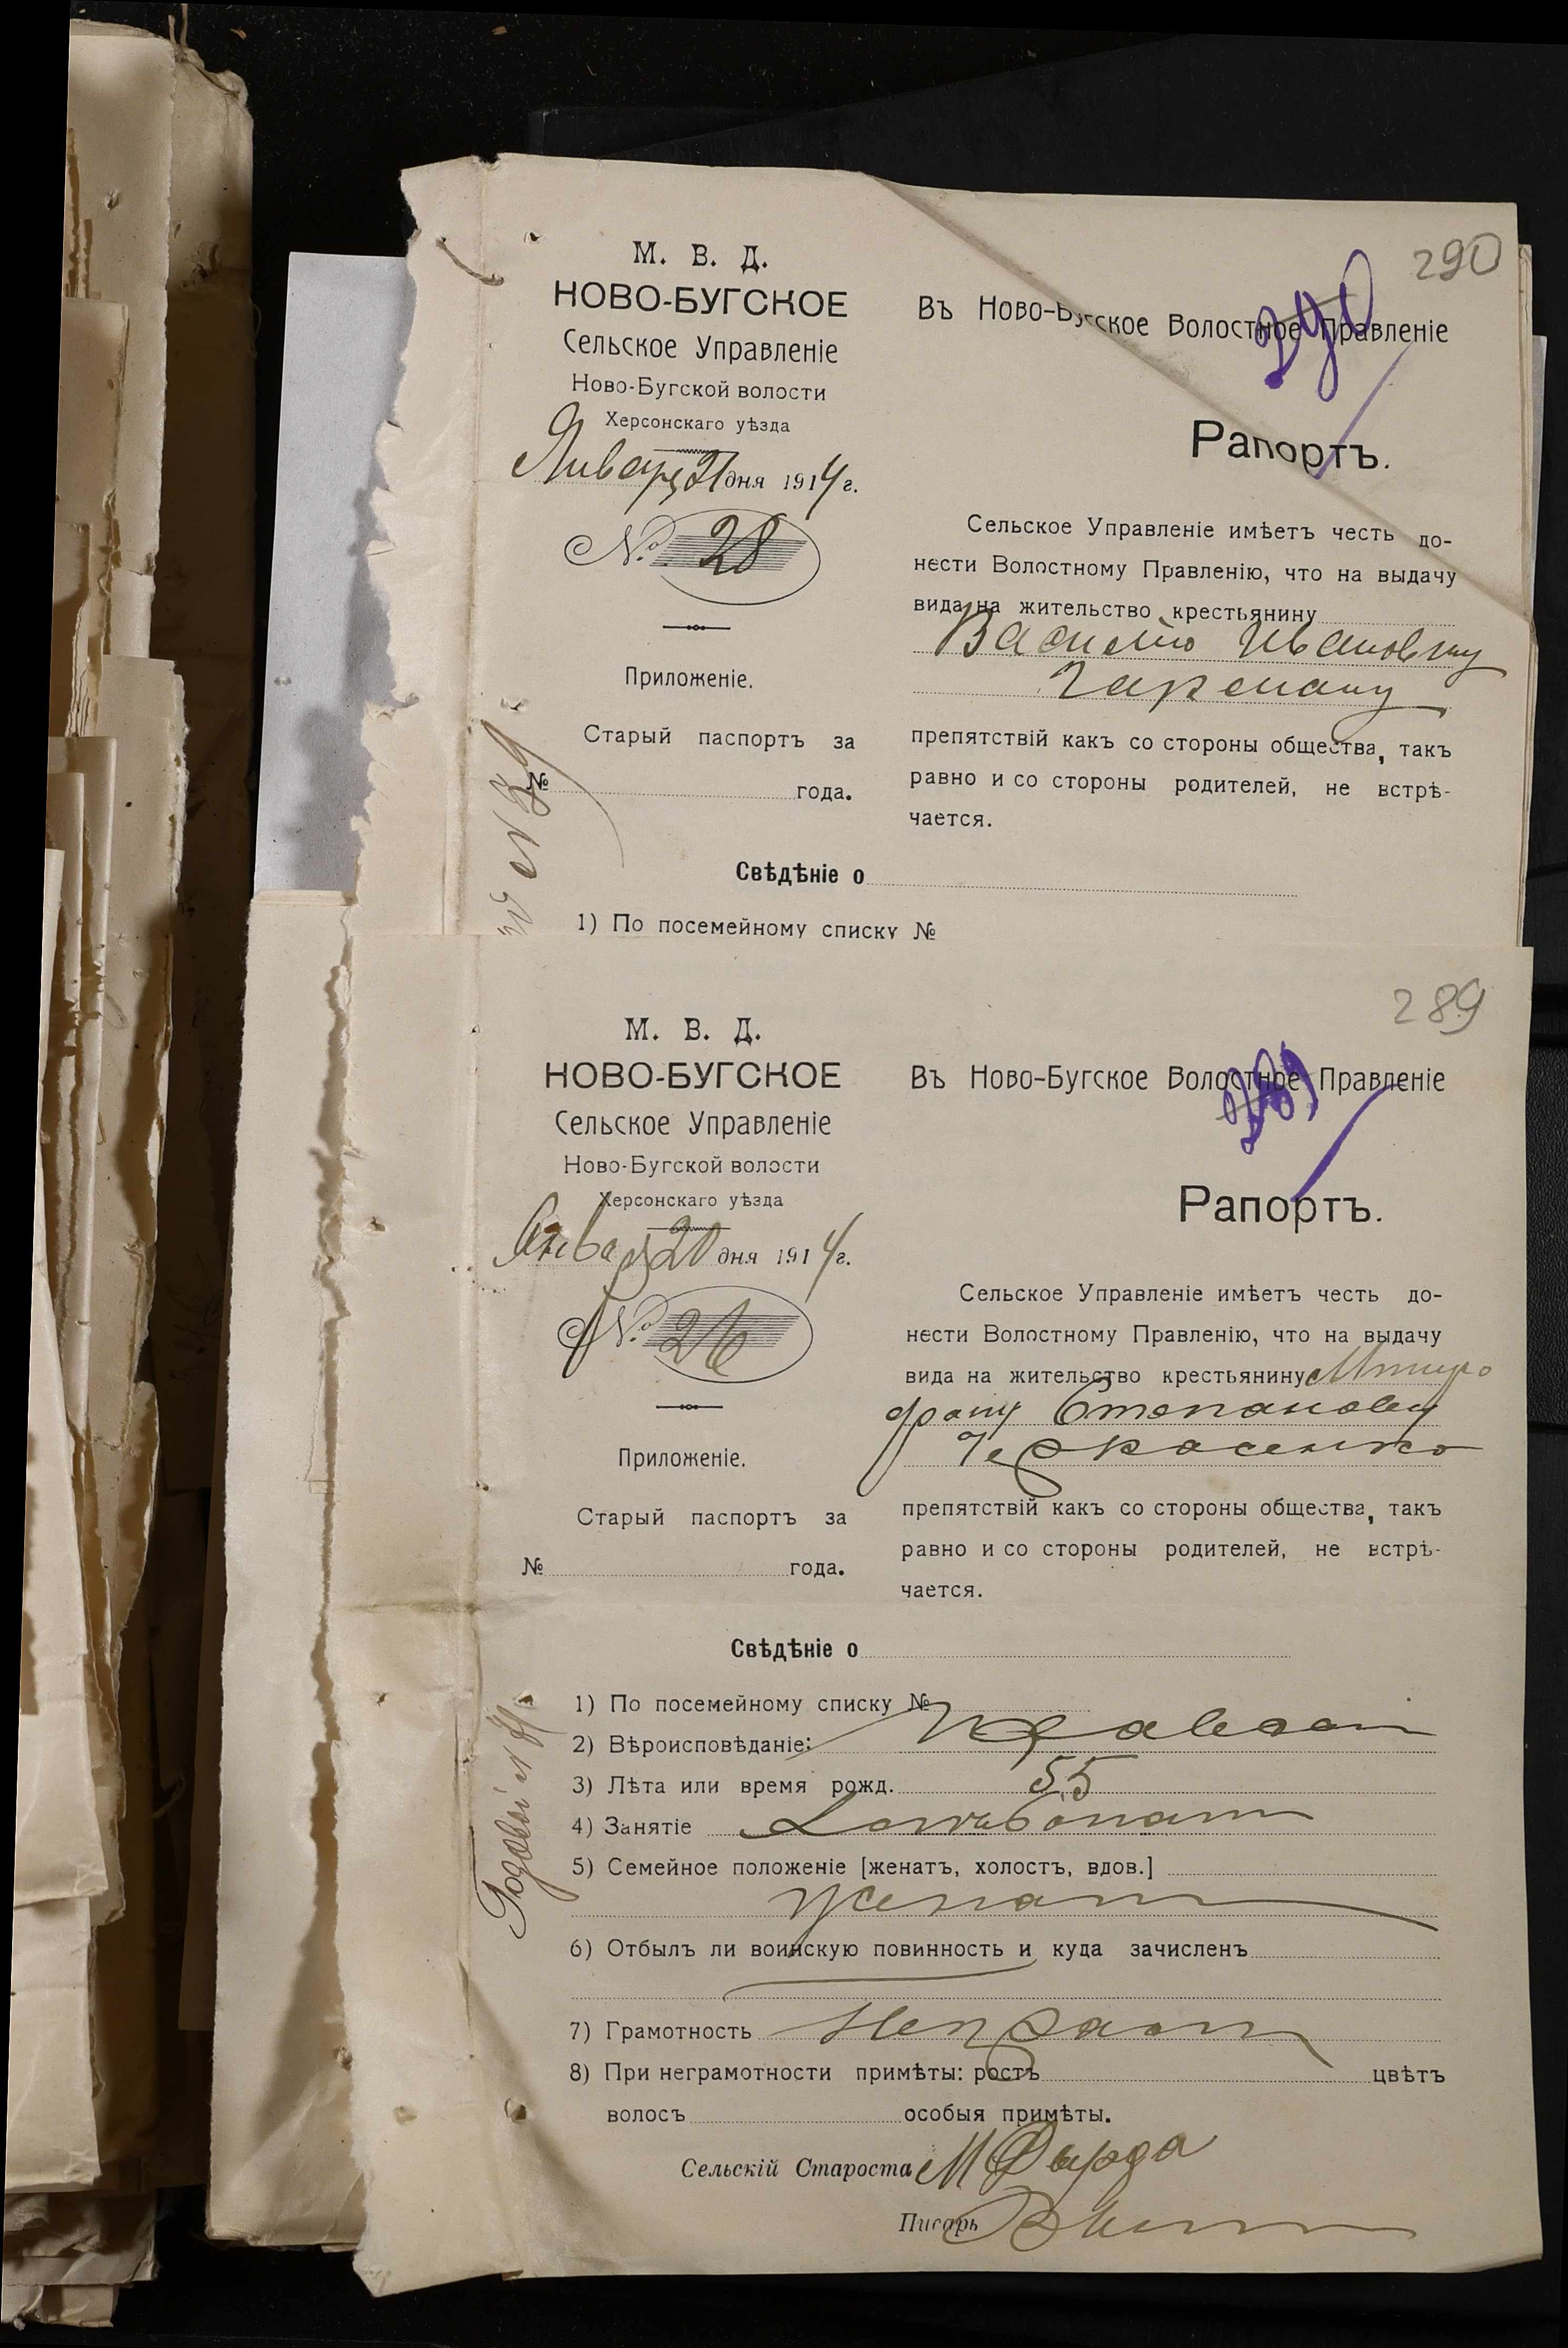 290
290
М. В. Д.
НОВО-БУГСКОЕ
Сельское Управленіе
Ново-Бугской волости
Херсонскаго уѣзда
Января 21 дня 1914 г.
№ 28
Приложеніе.
Старый паспортъ за
№ года.
Въ Ново-Бугское Волостное Правленіе
Рапортъ.
Сельское Управленіе имѣетъ честь до-
нести Волостному Правленію, что на выдачу
вида на жительство крестьянину
Василію Ивановичу
препятствій какъ со стороны общества, такъ
равно и со стороны родителей, не встрѣ-
чается.
№ 39
Свѣдѣніе о
1) По посемейному списку №
289
289
М. В. Д.
НОВО-БУГСКОЕ
Сельское Управленіе
Ново-Бугской волости
Херсонскаго уѣзда
Января 20 дня 1914 г.
№ 26
Приложеніе.
Старый паспортъ за
№ года.
Въ Ново-Бугское Волостное Правленіе
Рапортъ.
Сельское Управленіе имѣетъ честь до-
нести Волостному Правленію, что на выдачу
вида на жительство крестьянину Митро
фану Степанову
Черкасенко
препятствій какъ со стороны общества, такъ
равно и со стороны родителей, не встрѣ-
чается.
Свѣдѣніе о
1) По посемейному списку №
2) Вѣроисповѣданіе: Правосл
3) Лѣта или время рожд. 55
4) Занятіе Хлѣбопаш
5) Семейное положеніе [женатъ, холостъ, вдов.]
женат
6) Отбылъ ли воинскую повинность и куда зачисленъ
7) Грамотность Неграмот
8) При неграмотности примѣты: ростъ цвѣтъ
волосъ особыя примѣты.
Годовой №
Сельскій Староста М
Писарь